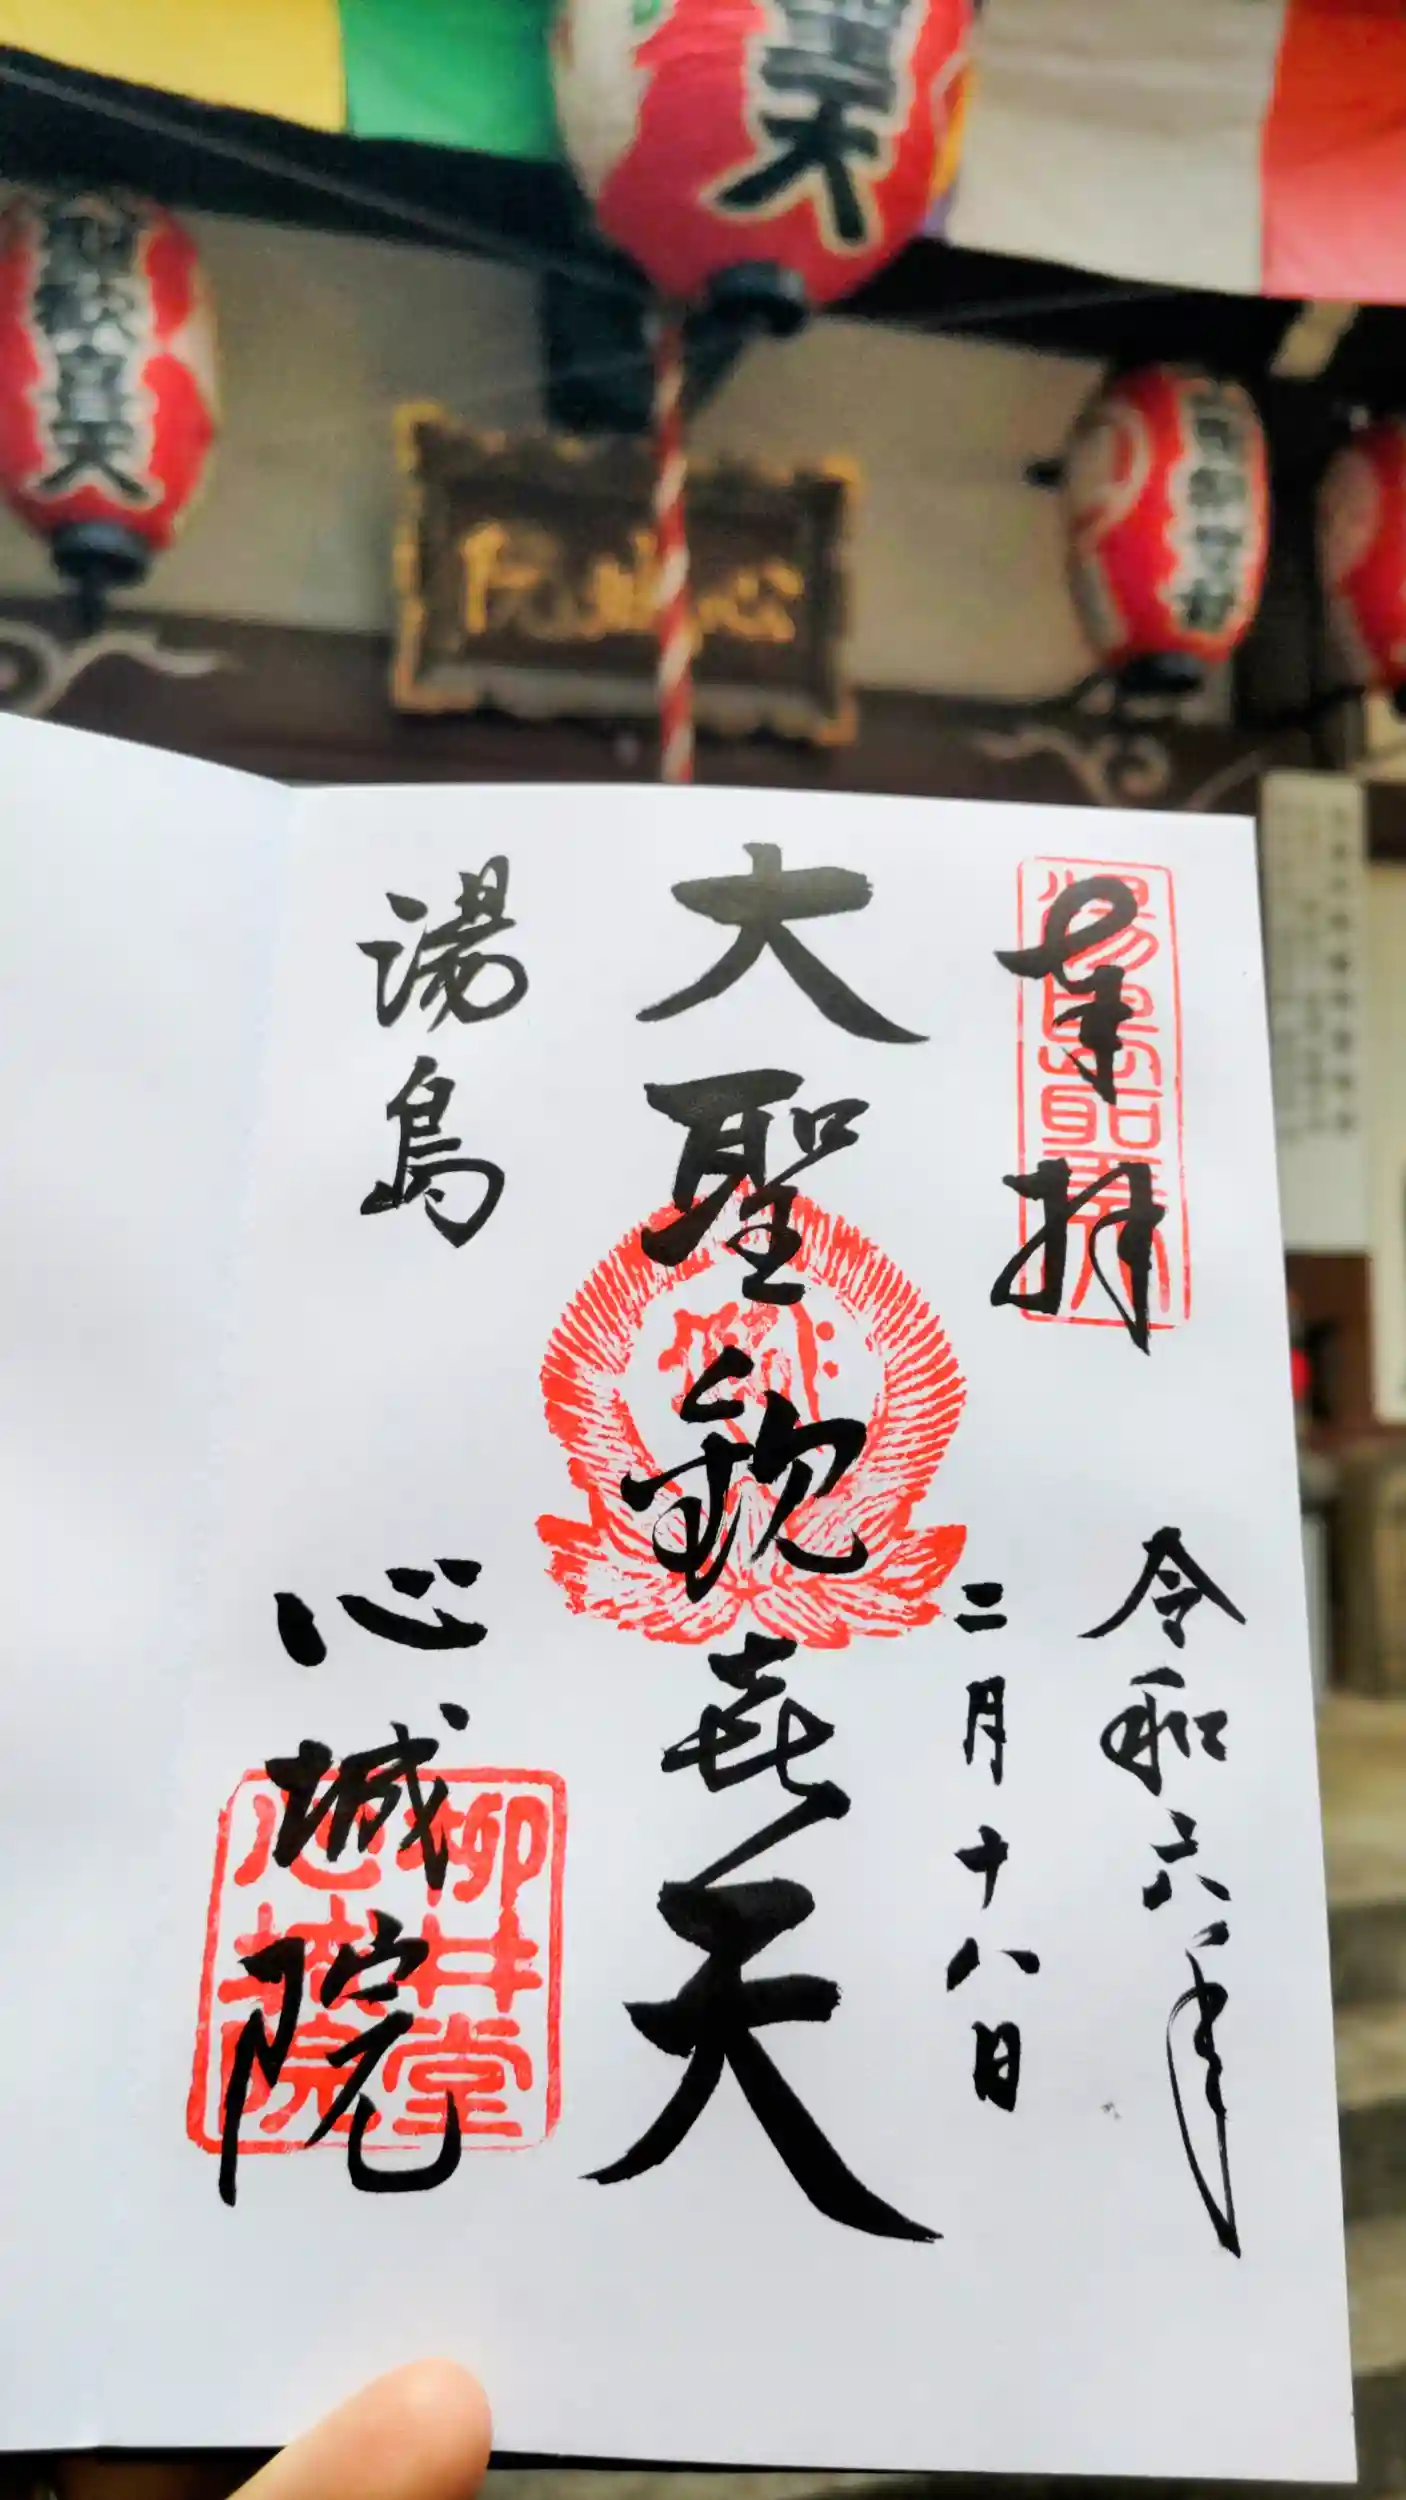 奉拝
湯島聖天
令和六年
二月十八日
大聖歓喜天
湯島
心城院
柳井堂
心城院
歓喜天
聖天
心城院